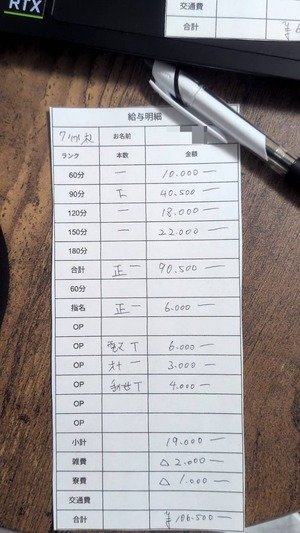 RTX
交通費
合計
給与明細
お名前
ランク 本数 金額
60分 一 10.000 ー
90分 下 40.500 ー
120分 一 18.000 ー
150分 一 22.000 ー
180分
合計 正一 90.500 ー
60分
指名 正一 6.000 ー
OP
OP T 6.000 ー
OP 一 3.000 ー
OP T 4.000 ー
OP
OP
小計 19.000 ー
雑費 △ 2.000 ー
寮費 △ 1.000 ー
交通費
合計 ¥ 106.500 ー